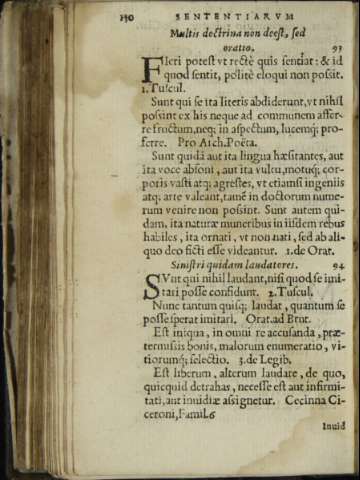 130 SENTENTIARVM
Multis doctrina non deest, sed
oratio. 93
FIeri potest vt rectè quis sentiat: & id
quod sentit, politè eloqui non possit.
1. Tuscul.
Sunt qui se ita literis abdiderunt, vt nihil
possint ex his neque ad communem affer-
re fructum, neq; in aspectum, lucemq; pro-
ferre. Pro Arch. Poëta.
Sunt quidã aut ita lingua hæsitantes, aut
ita voce absoni, aut ita vultu, motuq; cor-
poris vasti atq; agrestes, vt etiamsi ingeniis
atq; arte valeant, tamẽ in doctorum nume-
rum venire non possint. Sunt autem qui-
dam, ita naturæ muneribus in iisdem rebus
habiles, ita ornati, vt non nati, sed ab ali-
quo deo ficti esse videantur. 1. de Orat.
Sinistri quidam laudatores. 94
SVnt qui nihil laudant, nisi quod se imi-
tari posse confidunt. 2. Tuscul.
Nunc tantum quisq; laudat, quantum se
posse sperat imitari. Orat. ad Brut.
Est iniqua, in omni re accusanda, præ-
termissis bonis, malorum enumeratio, vi-
tiorumq; selectio. 3. de Legib.
Est liberum, alterum laudare, de quo,
quicquid detrahas, necesse est aut infirmi-
tati, aut inuidiæ assignetur. Cecinna Ci-
ceroni, Famil. 6
Inuid